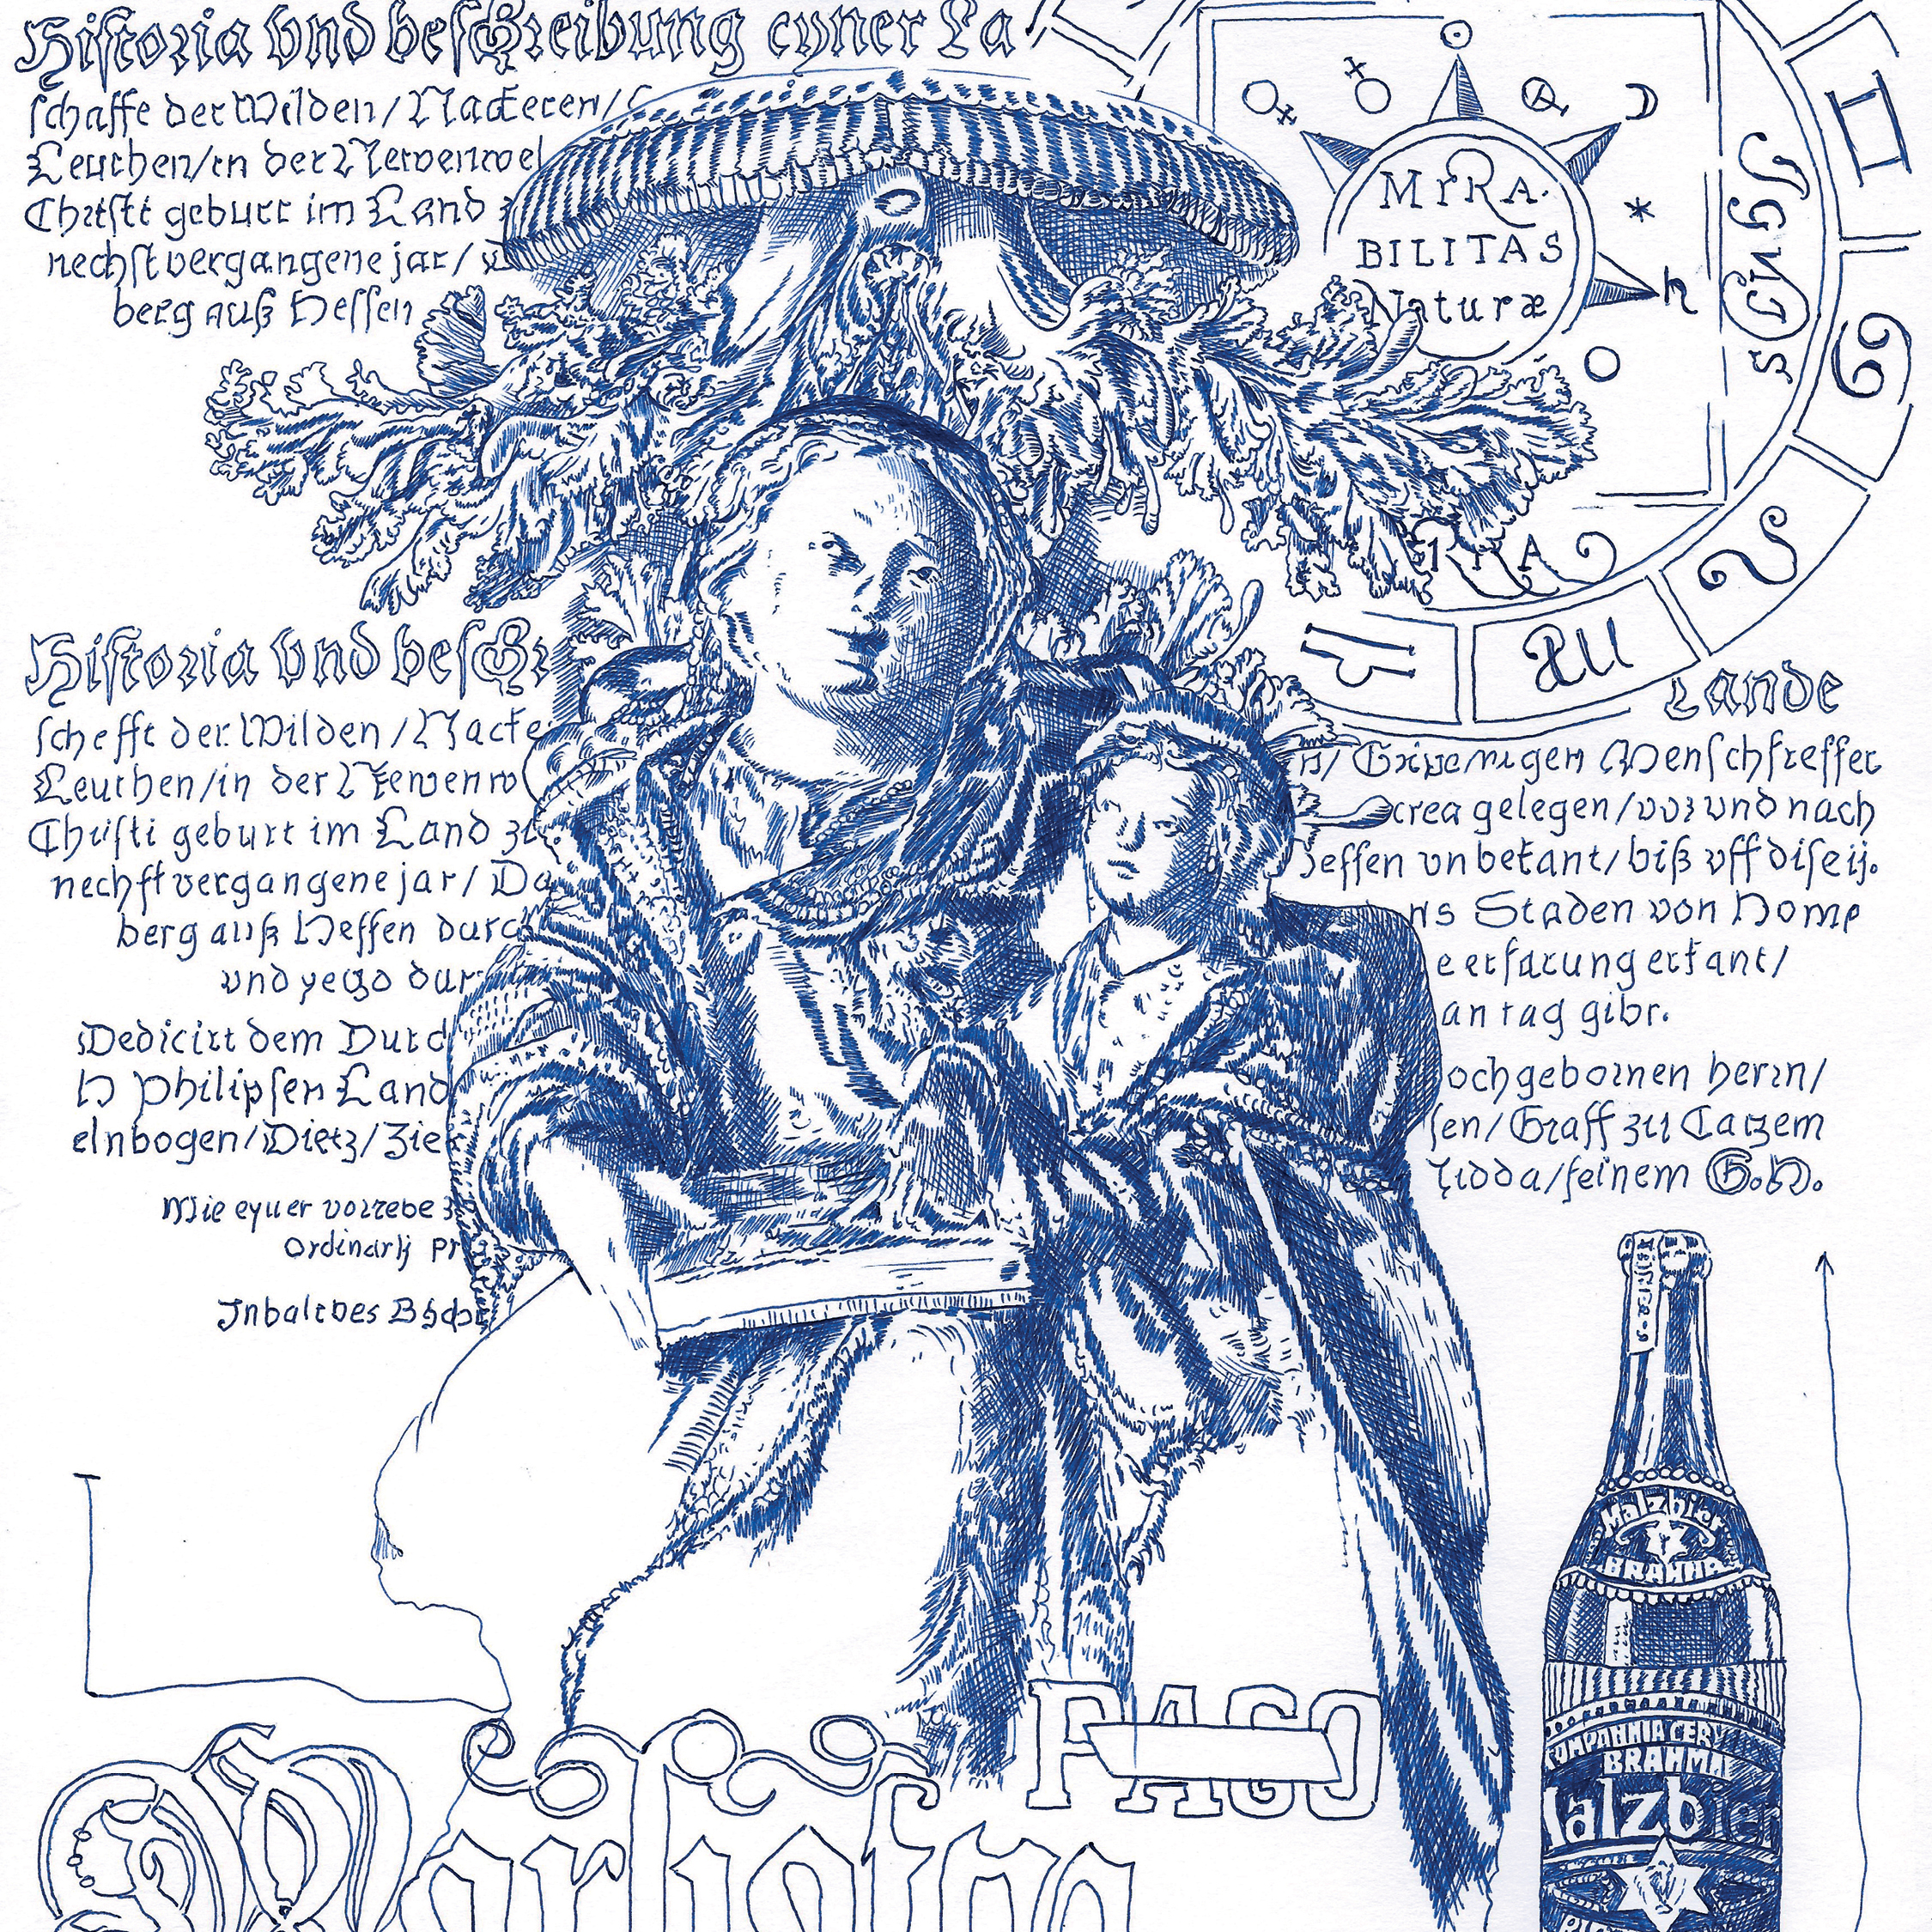 Historia vnd beschreibung eyner La
schafft der Wilden/Nacketen/
Leuthen/in der Newenwel
Christi geburt im Land
nechst vergangene jar/
berg auß Hessen
MIRA.
BILITAS
Naturæ
Historia vnd besch
schefft der Wilden/Nacke
Leuthen/in der Newenw
Christi geburt im Land zu
nechst vergangene jar/Da
berg auß Hessen durc
vnd yetzo dur
Dedicirt dem Durc
H Philipsen Land
elnbogen/Dietz/Zie
Mit eyner vorrede
Ordinarij Pr
Inhalt des Büchl
Lande
Grimmigen Menschfresser
erica gelegen/vor vnd nach
Hessen vnbekant/biß vff dise ij.
ns Staden von Home
e erfarung erkant/
an tag gibt.
ochgebornen herrn/
sen/Graff zu Catzem
Nidda/seinem G.H.
Malzbier
BRAHMA
COMPANHIA CERV
BRAHMA
Malzbier
PAGO
PAGO